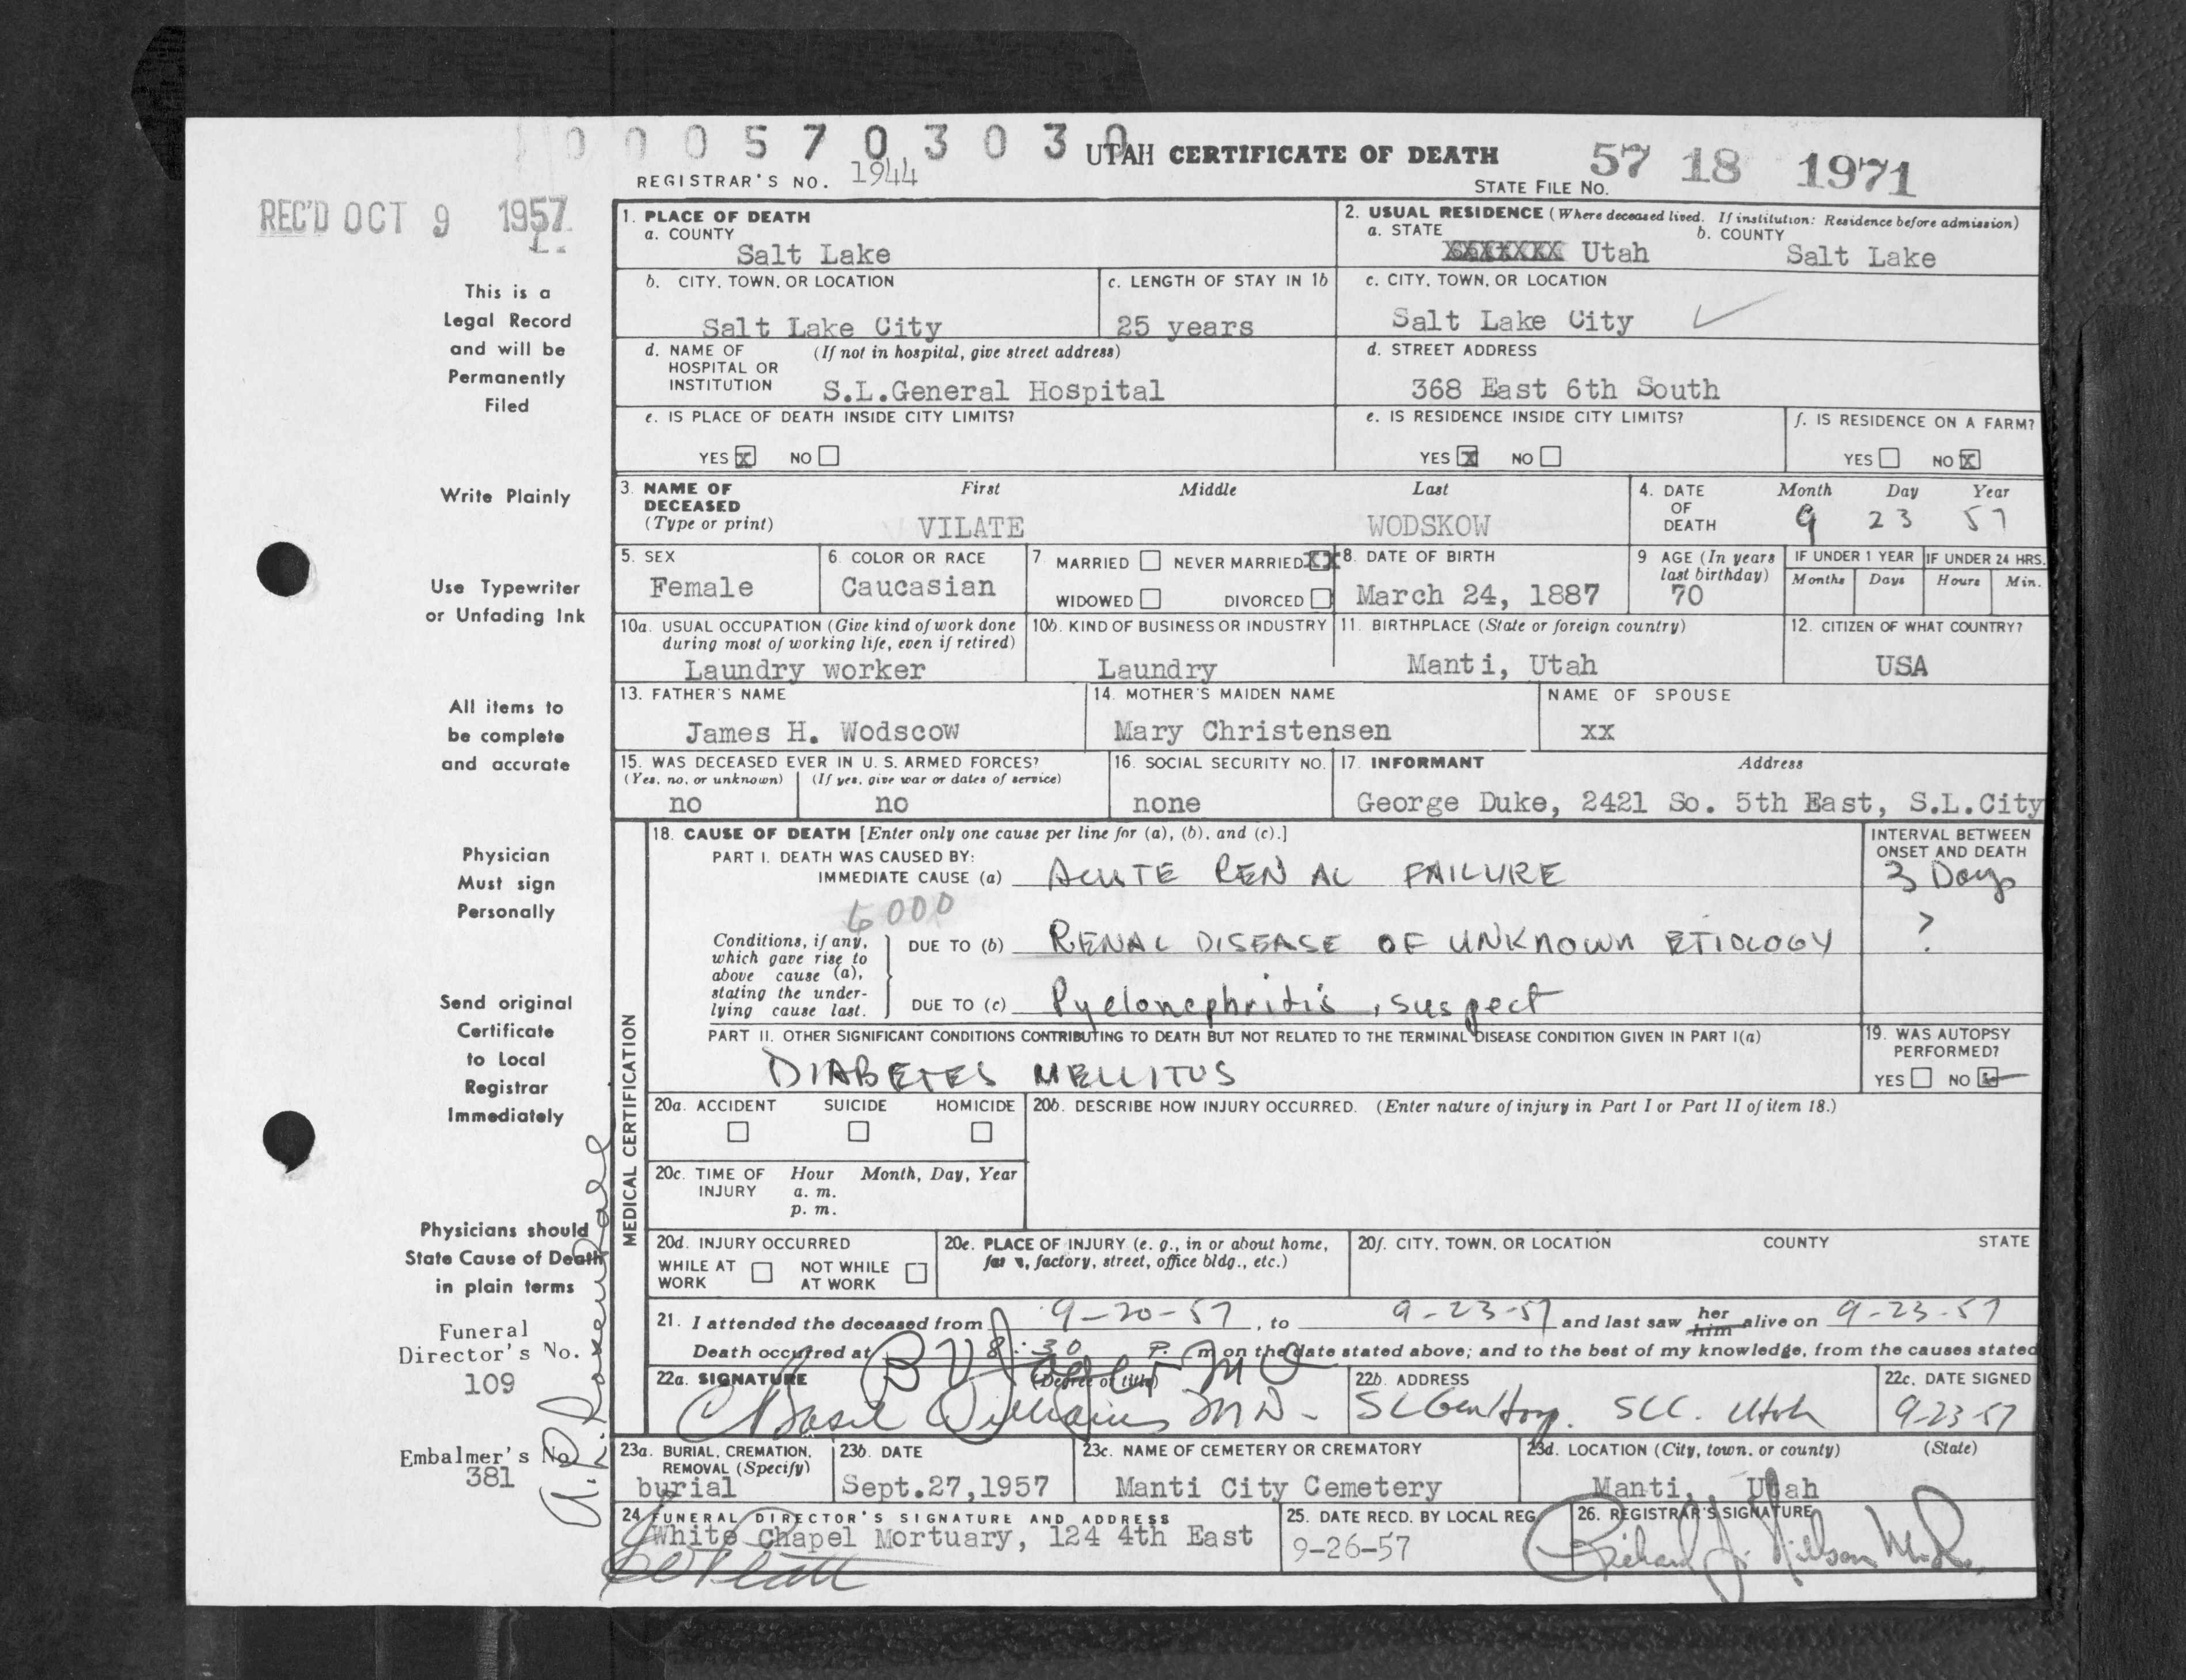 0 0 0 5 7 0 3 0 3 0
UTAH CERTIFICATE OF DEATH
57 18 1971
REGISTRAR'S NO. 1944
STATE FILE NO.
REC'D OCT 9 1957
This is a
Legal Record
and will be
Permanently
Filed
Write Plainly
Use Typewriter
or Unfading Ink
All items to
be complete
and accurate
Physician
Must sign
Personally
Send original
Certificate
to Local
Registrar
Immediately
Physicians should
State Cause of Death
in plain terms
Funeral
Director's No.
109
Embalmer's No
381
1. PLACE OF DEATH
a. COUNTY
Salt Lake
2. USUAL RESIDENCE (Where deceased lived. If institution: Residence before admission)
a. STATE b. COUNTY
Utah Salt Lake
b. CITY, TOWN, OR LOCATION
Salt Lake City
c. LENGTH OF STAY IN 1b
25 years
c. CITY, TOWN, OR LOCATION
Salt Lake City
d. NAME OF (If not in hospital, give street address)
HOSPITAL OR
INSTITUTION S.L.General Hospital
d. STREET ADDRESS
368 East 6th South
e. IS PLACE OF DEATH INSIDE CITY LIMITS?
YES X NO
e. IS RESIDENCE INSIDE CITY LIMITS?
YES X NO
f. IS RESIDENCE ON A FARM?
YES NO X
3. NAME OF First Middle Last
DECEASED
(Type or print) VILATE WODSKOW
4. DATE Month Day Year
OF
DEATH 9 23 57
5. SEX
Female
6. COLOR OR RACE
Caucasian
7. MARRIED NEVER MARRIED XX
WIDOWED DIVORCED
8. DATE OF BIRTH
March 24, 1887
9 AGE (In years
last birthday)
70
IF UNDER 1 YEAR IF UNDER 24 HRS.
Months Days Hours Min.
10a. USUAL OCCUPATION (Give kind of work done
during most of working life, even if retired)
Laundry worker
10b. KIND OF BUSINESS OR INDUSTRY
Laundry
11. BIRTHPLACE (State or foreign country)
Manti, Utah
12. CITIZEN OF WHAT COUNTRY?
USA
13. FATHER'S NAME
James H. Wodscow
14. MOTHER'S MAIDEN NAME
Mary Christensen
NAME OF SPOUSE
xx
15. WAS DECEASED EVER IN U. S. ARMED FORCES?
(Yes, no, or unknown) (If yes, give war or dates of service)
no no
16. SOCIAL SECURITY NO.
none
17. INFORMANT Address
George Duke, 2421 So. 5th East, S.L.City
MEDICAL CERTIFICATION
18. CAUSE OF DEATH [Enter only one cause per line for (a), (b), and (c).]
INTERVAL BETWEEN
ONSET AND DEATH
PART I. DEATH WAS CAUSED BY:
IMMEDIATE CAUSE (a) ACUTE RENAL FAILURE 3 Days
6000
Conditions, if any,
which gave rise to
above cause (a),
stating the under-
lying cause last.
DUE TO (b) RENAL DISEASE OF UNKNOWN ETIOLOGY ?
DUE TO (c) Pyelonephritis, suspect
PART II. OTHER SIGNIFICANT CONDITIONS CONTRIBUTING TO DEATH BUT NOT RELATED TO THE TERMINAL DISEASE CONDITION GIVEN IN PART I(a)
DIABETES MELLITUS
19. WAS AUTOPSY
PERFORMED?
YES NO
20a. ACCIDENT SUICIDE HOMICIDE
20b. DESCRIBE HOW INJURY OCCURRED. (Enter nature of injury in Part I or Part II of item 18.)
20c. TIME OF Hour Month, Day, Year
INJURY a. m.
p. m.
20d. INJURY OCCURRED
WHILE AT NOT WHILE
WORK AT WORK
20e. PLACE OF INJURY (e. g., in or about home,
factory, street, office bldg., etc.)
20f. CITY, TOWN, OR LOCATION COUNTY STATE
21. I attended the deceased from 9-20-57, to 9-23-57 and last saw her him alive on 9-23-57
Death occurred at 8:30 P. m on the date stated above; and to the best of my knowledge, from the causes stated
22a. SIGNATURE (Degree or title)
Basil Williams MD
22b. ADDRESS
SL Gen Hosp. SLC. Utah
22c. DATE SIGNED
9-23-57
23a. BURIAL, CREMATION,
REMOVAL (Specify)
burial
23b. DATE
Sept.27,1957
23c. NAME OF CEMETERY OR CREMATORY
Manti City Cemetery
23d. LOCATION (City, town, or county) (State)
Manti, Utah
24 FUNERAL DIRECTOR'S SIGNATURE AND ADDRESS
White Chapel Mortuary, 124 4th East
25. DATE RECD. BY LOCAL REG
9-26-57
26. REGISTRAR'S SIGNATURE
Richard J. Nilson M.D.